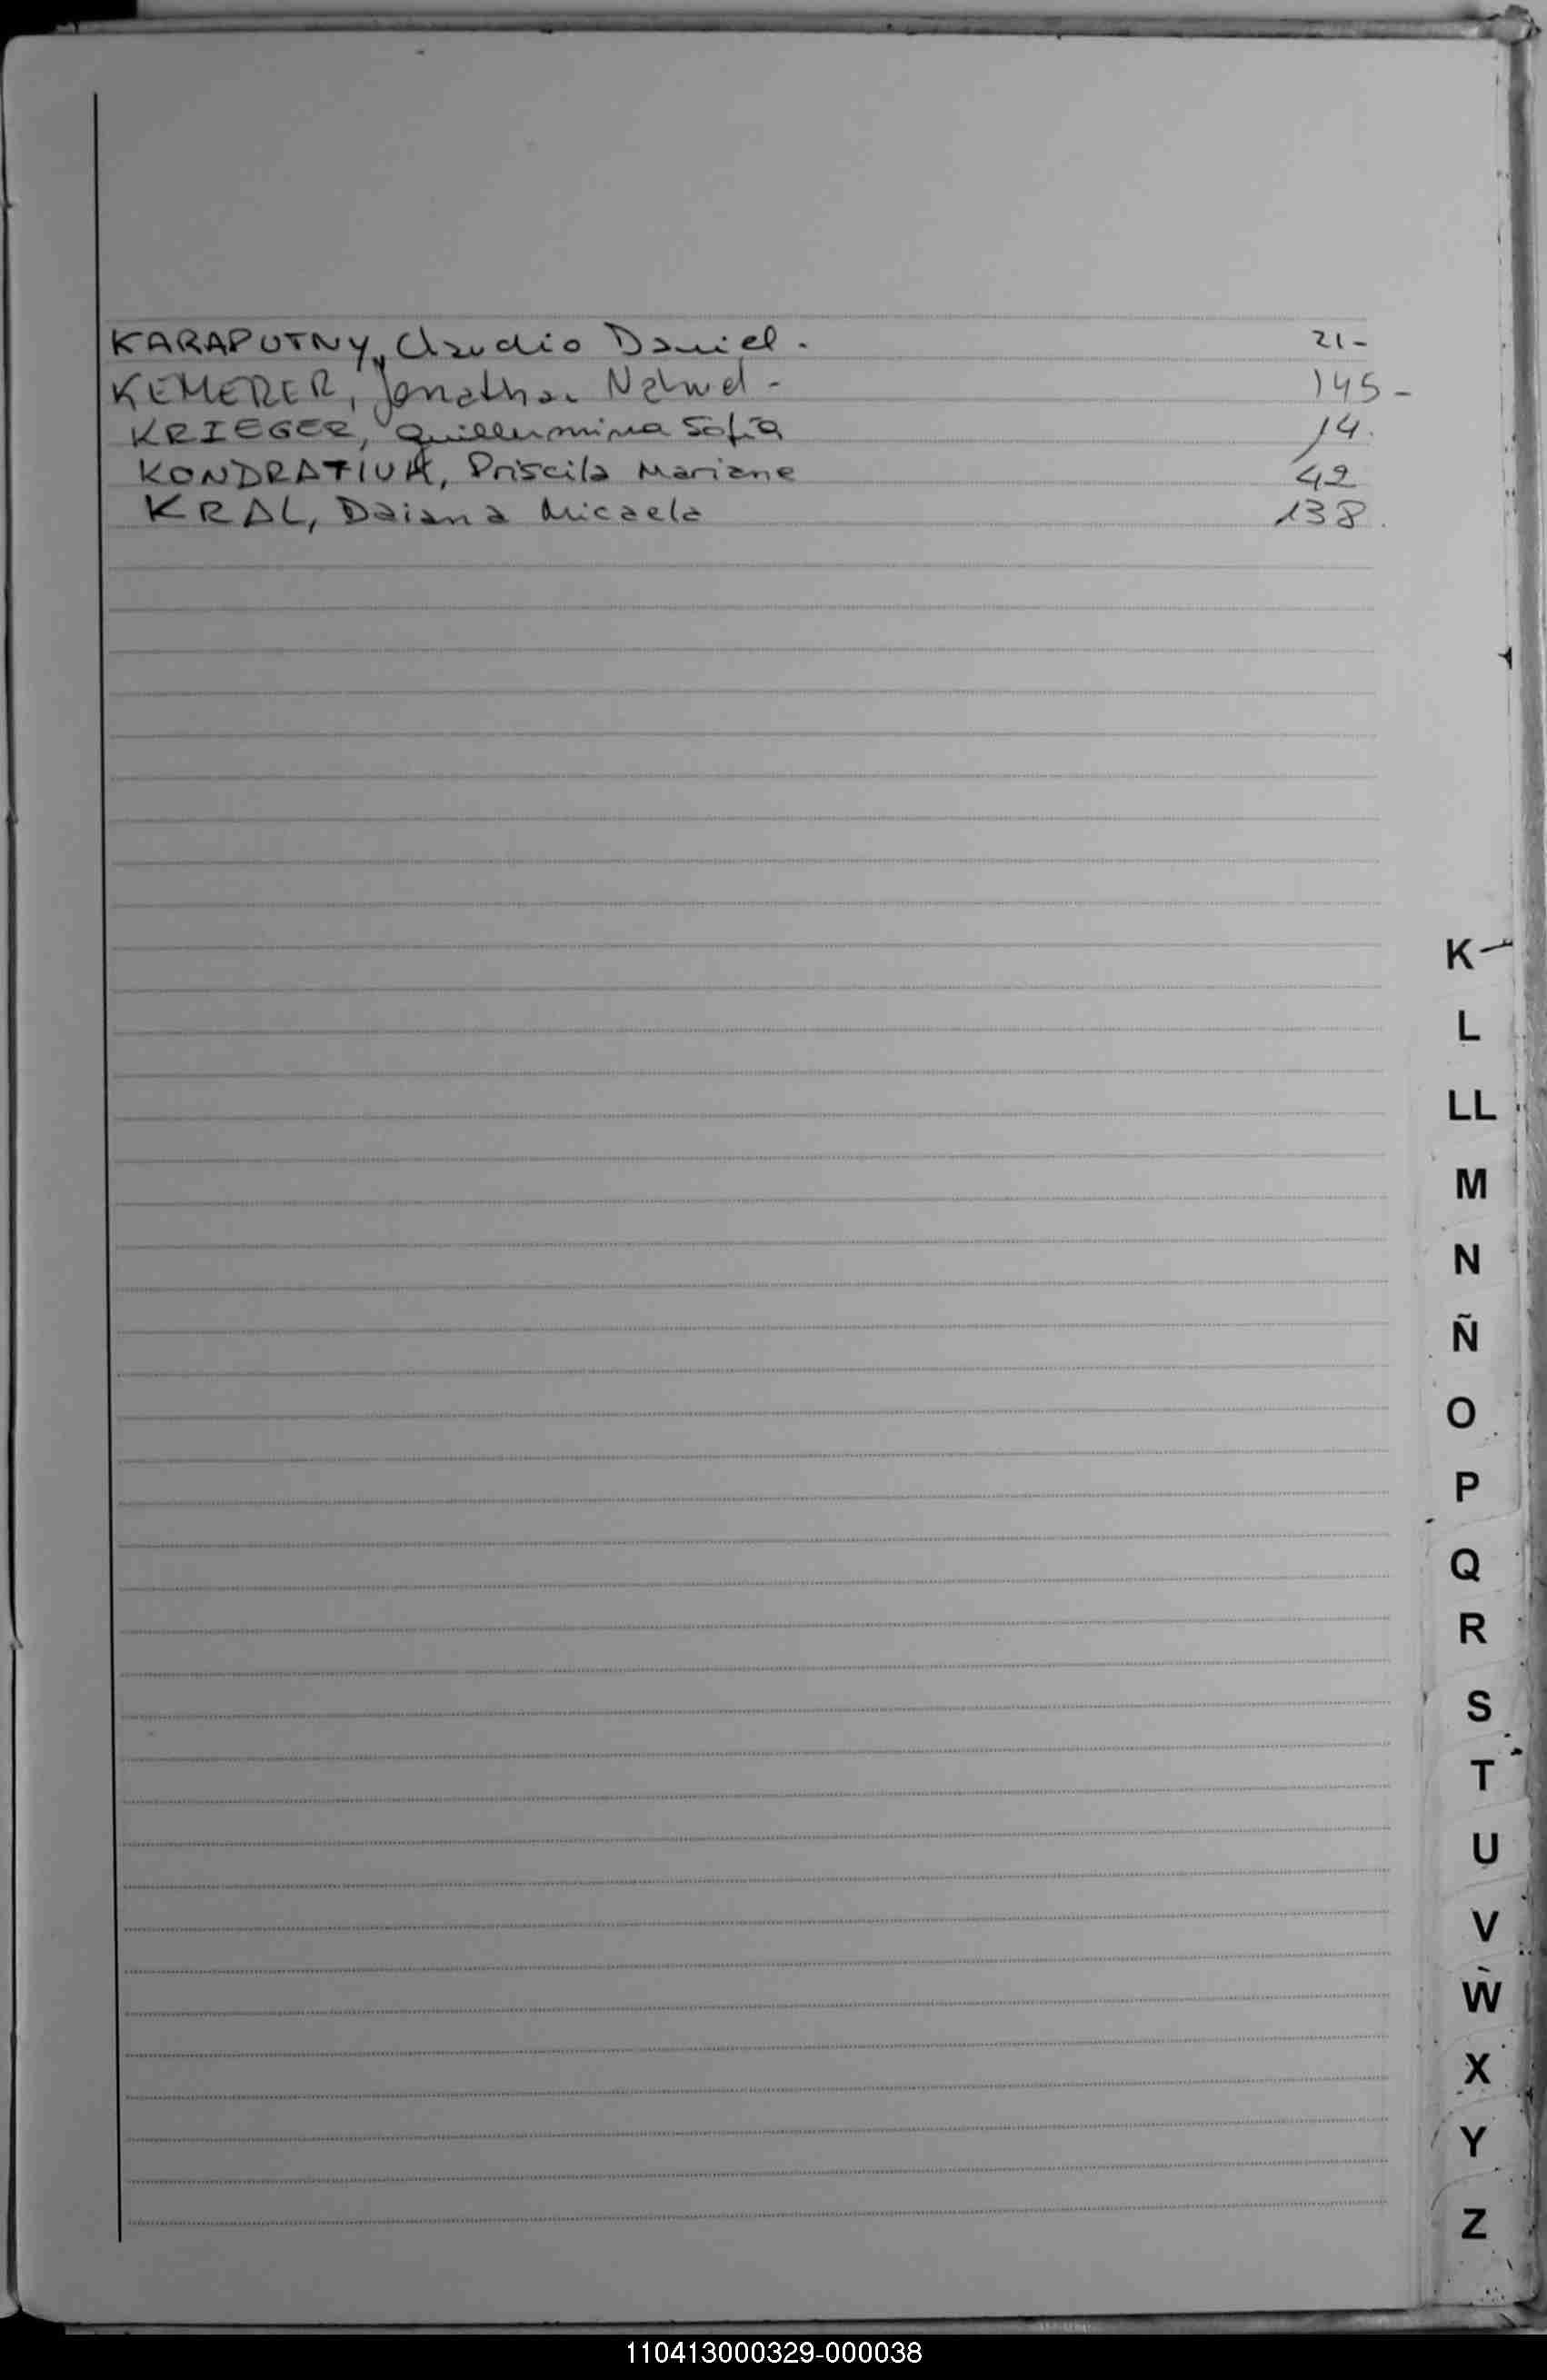 KARAPUTNY, Claudio Daniel. 21-
KEMERER, Jonathan Nahuel - 145-
KRIEGER, Guillermina Sofía 14.
KONDRATIUK, Priscila Mariane 42
KRAL, Daiana Micaela 138.
K
L
LL
M
N
Ñ
O
P
Q
R
S
T
U
V
W
X
Y
Z
110413000329-000038